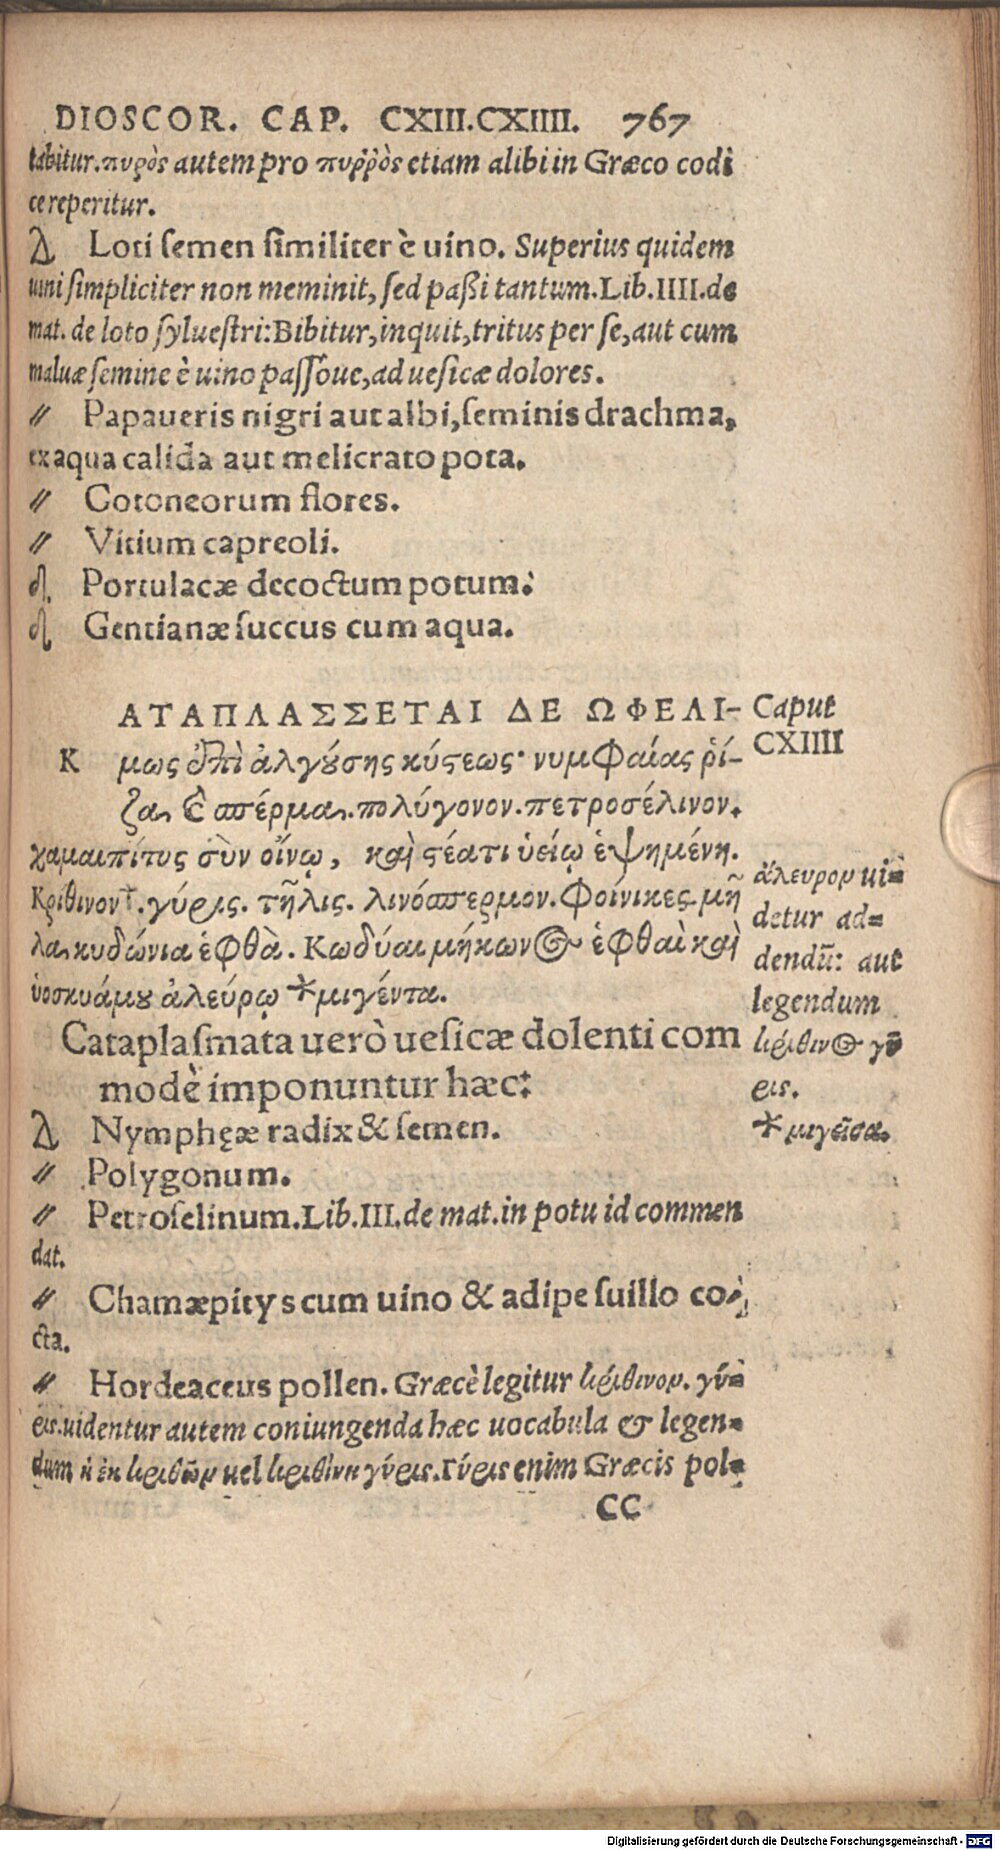 DIOSCOR. CAP. CXIII.CXIIII. 767
tabitur.πυρὸς autem pro πυῤῥὸς etiam alibi in Græco codi
ce reperitur.
Loti semen similiter è uino. Superius quidem
uini simpliciter non meminit, sed paßi tantum.Lib.IIII.de
mat. de loto syluestri:Bibitur,inquit,tritus per se,aut cum
maluæ semine è uino passóue,ad uesicæ dolores.
〃 Papaueris nigri aut albi,seminis drachma,
ex aqua calida aut melicrato pota.
〃 Cotoneorum flores.
〃 Vitium capreoli.
Portulacæ decoctum potum.
Gentianæ succus cum aqua.
ΑΤΑΠΛΑΣΣΕΤΑΙ ΔΕ ΩΦΕΛΙ- Caput
CXIIII
Κ μως ἐπὶ ἀλγούσης κύστεως· νυμφαίας ῥί-
ζα, καὶ σπέρμα. πολύγονον. πετροσέλινον.
χαμαιπίτυς σὺν οἴνῳ, καὶ στέατι ὑείῳ ἑψημένη.
Κρίθινον†. γύρις. τῆλις. λινόσπερμον. Φοίνικες. μῆ
λα κυδώνια ἑφθὰ. Κωδύαι μήκωνος ἑφθαὶ καὶ
ὑοσκυάμου ἀλεύρῳ *μιγέντα.
ἄλευρον ui=
detur ad=
dendū: aut
legendum
κρίθινος γύ
ρις.
*μιγεῖσα.
Cataplasmata uerò uesicæ dolenti com
modè imponuntur hæc:
Nymphęæ radix & semen.
〃 Polygonum.
〃 Petroselinum.Lib.III.de mat.in potu id commen
dat.
〃 Chamæpitys cum uino & adipe suillo co-
cta.
〃 Hordeaceus pollen. Græcè legitur κρίθινον. γύ=
ρις.uidentur autem coniungenda hæc uocabula & legen=
dum ἡ ἐκ κριθῶν uel κριθίνη γύρις.Γύρις enim Græcis pol=
CC
Digitalisierung gefördert durch die Deutsche Forschungsgemeinschaft - DFG